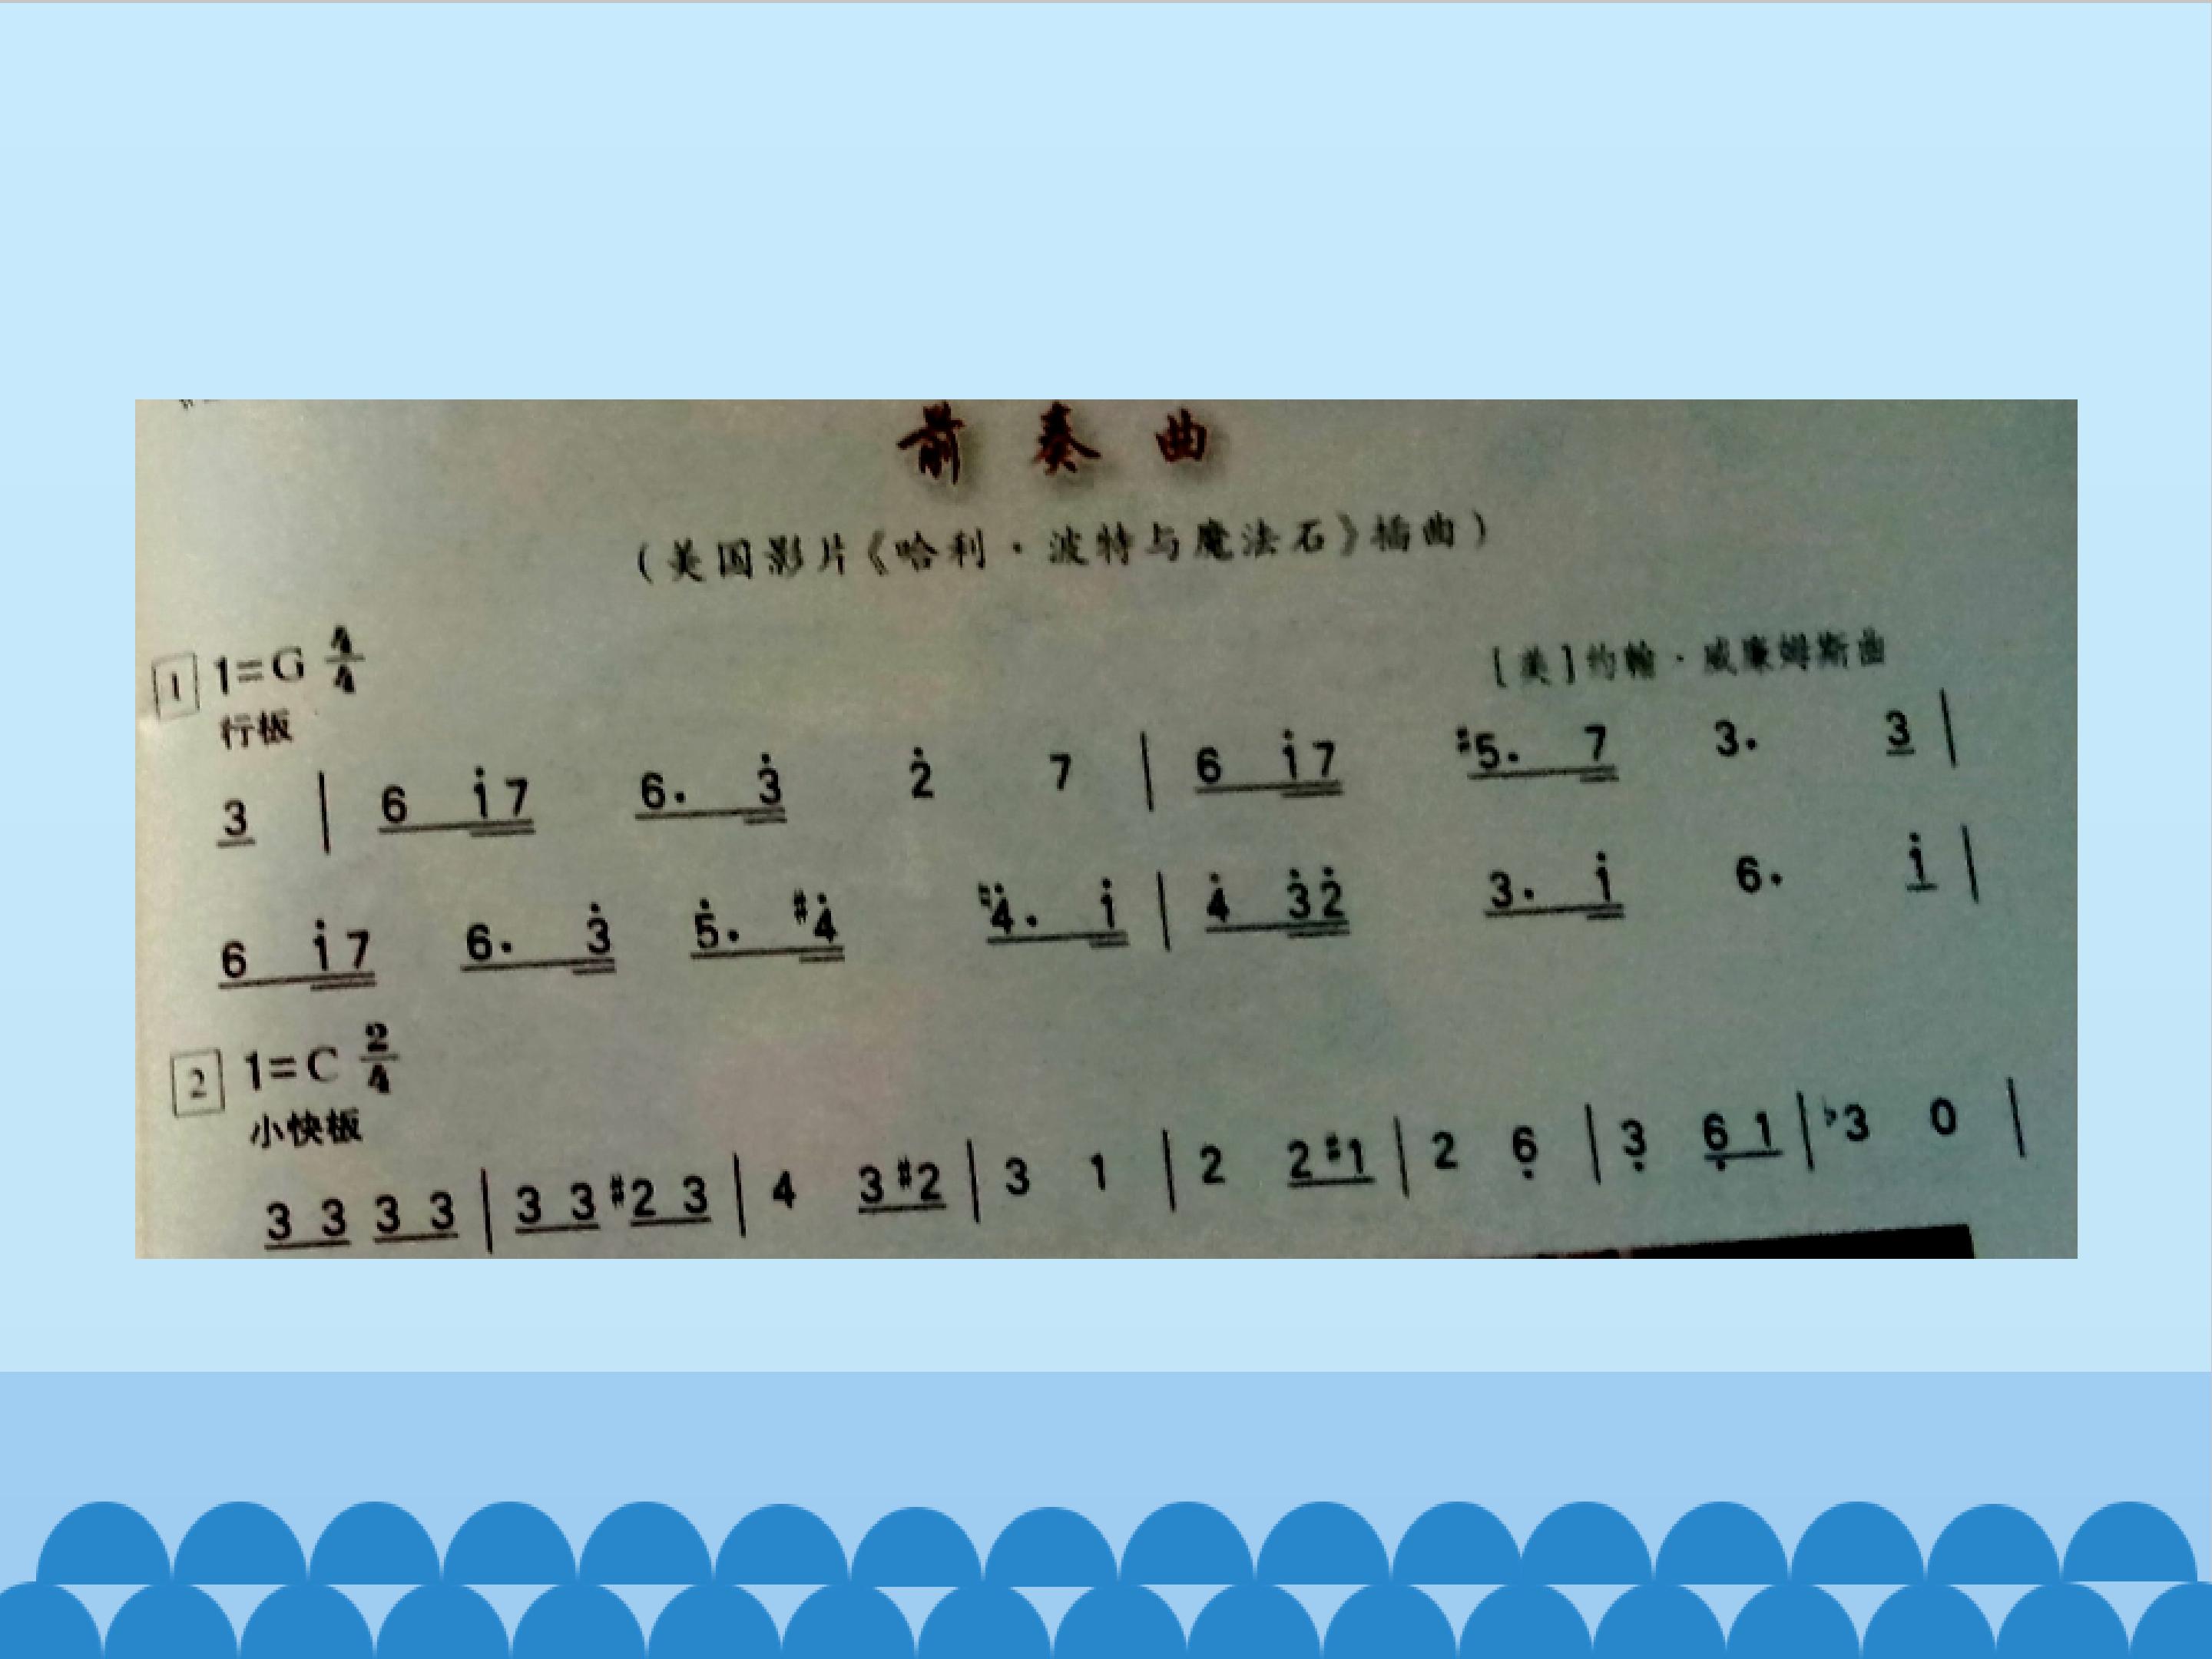 前奏曲
（美国影片《哈利·波特与魔法石》插曲）
1 1=G 4/4
[美]约翰·威廉姆斯曲
行板
3 | 6 i̇7 6. 3̇ 2̇ 7 | 6 i̇7 #5. 7 3. 3 |
6 i̇7 6. 3̇ 5̇. #4̇ ♮4̇. i̇ | 4̇ 3̇2̇ 3. i̇ 6. i̇ |
2 1=C 2/4
小快板
3 3 3 3 | 3 3 #2 3 | 4 3 #2 | 3 1 | 2 2 #1 | 2 6̣ | 3̣ 6̣ 1 | ♭3 0 |